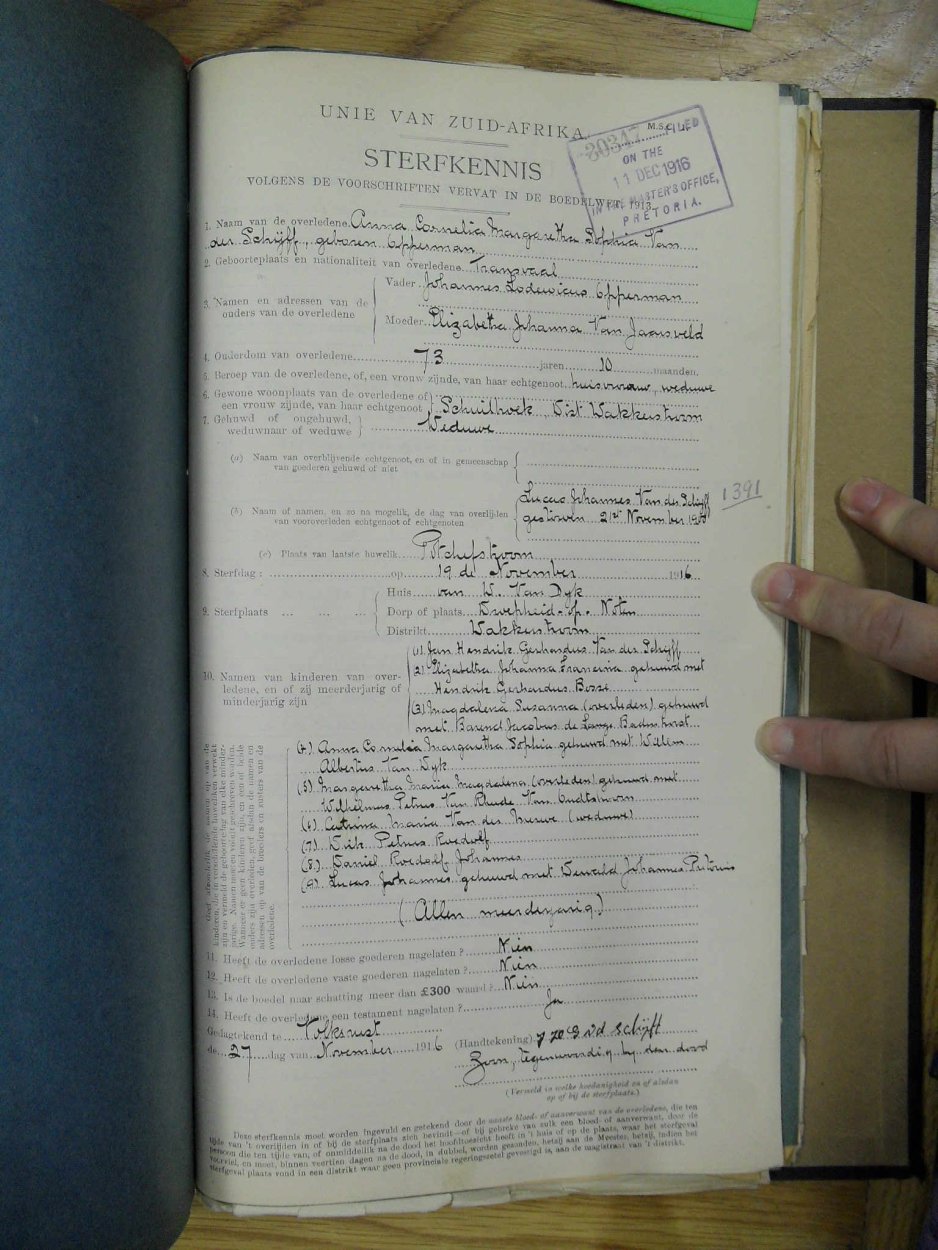 UNIE VAN ZUID-AFRIKA.
M.S.C. 1.
20347 FILED
ON THE
11 DEC 1916
IN THE MASTER'S OFFICE,
PRETORIA.
STERFKENNIS
VOLGENS DE VOORSCHRIFTEN VERVAT IN DE BOEDELWET, 1913.
1. Naam van de overledene Anna Cornelia Margaretha Sophia Van
der Schijff, geboren Opperman
2. Geboorteplaats en nationaliteit van overledene Transvaal
3. Namen en adressen van de ouders van de overledene
Vader Johannes Lodewicus Opperman
Moeder Elizabetha Johanna Van Jaarsveld
4. Ouderdom van overledene 73 jaren 10 maanden.
5. Beroep van de overledene, of, een vrouw zijnde, van haar echtgenoot huisvrouw, weduwe
6. Gewone woonplaats van de overledene of een vrouw zijnde, van haar echtgenoot Schuilhoek Dist Wakkerstroom
7. Gehuwd of ongehuwd, weduwnaar of weduwe Weduwe
(a) Naam van overblijvende echtgenoot, en of in gemeenschap
van goederen gehuwd of niet
(b) Naam of namen, en zo na mogelik, de dag van overlijden
van vooroverleden echtgenoot of echtgenoten
Lucas Johannes Van der Schijff
gestorven 21ste November
1391
(c) Plaats van laatste huwelik Potchefstroom
8. Sterfdag : op 19 de November 1916
9. Sterfplaats ... ... ...
Huis van W. Van Dyk
Dorp of plaats
Distrikt Wakkerstroom
10. Namen van kinderen van overledene, en of zij meerderjarig of
minderjarig zijn
(1) Jan Hendrik Gerhardus Van der Schijff
(2) Elizabetha Johanna Francina gehuwd met
Hendrik Gerhardus
(3) Magdalena Susanna (overleden) gehuwd
met Barend Jacobus de Lange Badenhorst
(4) Anna Cornelia Margaretha Sophia gehuwd met Willem
Albertus Van Dyk
(5) Margaretha Maria Magdalena (overleden) gehuwd met
Wilhelmus Petrus Van Rheede Van Oudtshoorn
(6) Catrina Maria Van der Merwe (weduwe)
(7) Dirk Petrus Roedolf
(8) Daniel Roedolf Johannes
(9) Lucas Johannes gehuwd met Johannes Pretorius
(Allen meerderjarig)
11. Heeft de overledene losse goederen nagelaten ? Nien
12. Heeft de overledene vaste goederen nagelaten ? Nien
13. Is de boedel naar schatting meer dan £300 waard ? Nien
14. Heeft de overledene een testament nagelaten ? Ja
Gedagtekend te Volksrust
de 27 dag van November 1916
(Handtekening) J H G v d Schijff
Zoon, tegenwoordig by den dood
(Vermeld in welke hoedanigheid en of aldan
op of bij de sterfplaats.)
Deze sterfkennis moet worden ingevuld en getekend door de naaste bloed- of aanverwant van de overledene, die ten
tijde van 't overlijden in of bij de sterfplaats zich bevindt—of bij gebreke van zulk een bloed- of aanverwant, door de
persoon die ten tijde van, of onmiddellik na de dood het hoofdtoezicht heeft in 't huis of op de plaats, waar het sterfgeval
voorviel, en moet, binnen veertien dagen na de dood, in dubbel, worden gezonden, hetzij aan de Meester, hetzij, indien het
sterfgeval plaats vond in een distrikt waar geen provinciale regeringszetel gevestigd is, aan de magistraat van 't distrikt.